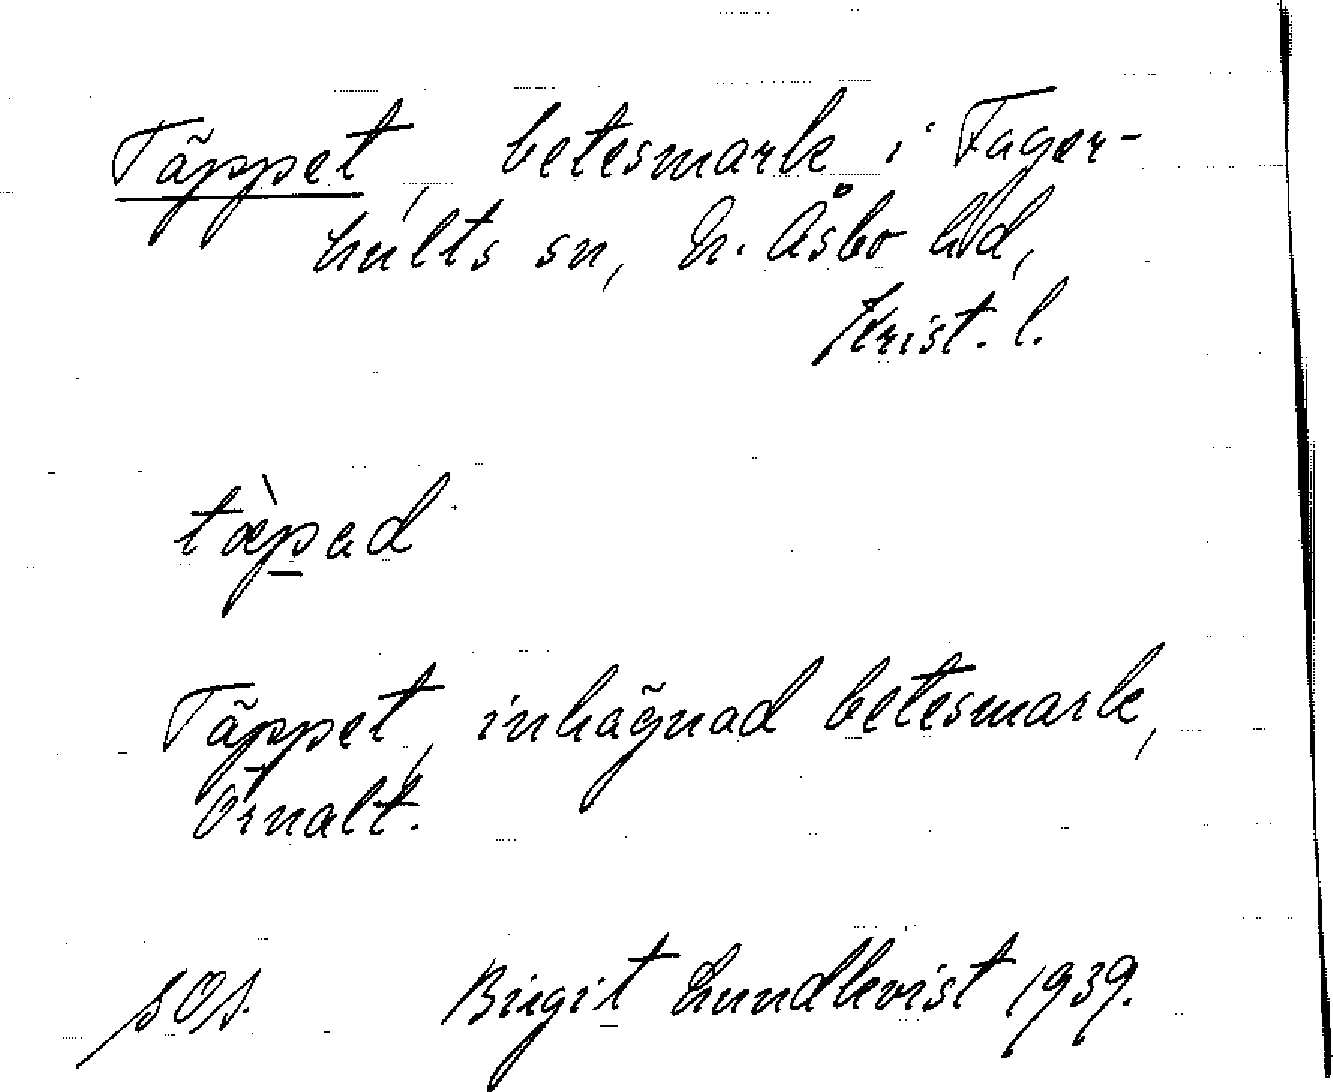 Täppet, betesmark i Fager-
hults sn, N. Åsbo hd,
Krist. l.
tæ̀p̱ad
Täppet, inhägnad betesmark,
Örnalt.
Birgit Lundkvist 1939.